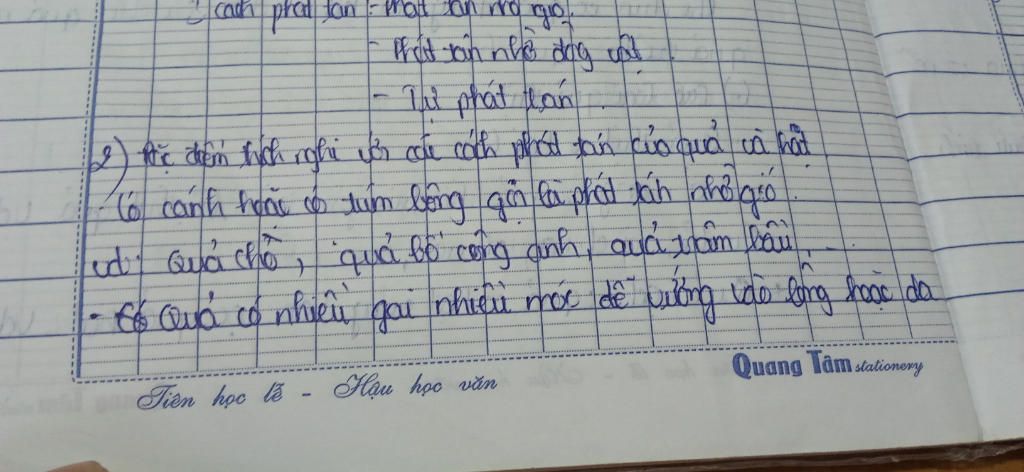 cách phát tán - Phát tán nhờ gió.
- Phát tán nhờ động vật
- Tự phát tán.
2) Đặc điểm thích nghi với các cách phát tán của quả và hạt
Có cánh hoặc có túm lông gọi là phát tán nhờ gió.
vd: Quả chò, quả bồ công anh, quả trâm bầu, ...
- Quả có nhiều gai nhiều móc dễ vướng vào lông hoặc da
Quang Tâm stationery
Tiên học lễ - Hậu học văn